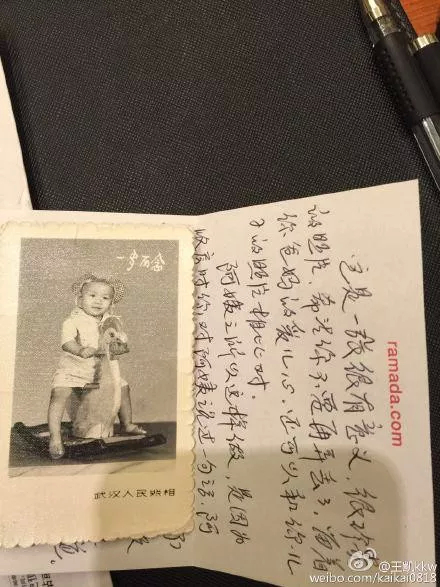 ramada.com
这是一张很有意义、很珍
的照片,希望你不要再丢了,留着
你爸妈的爱儿心,还可以和你儿
子的照片相比对。
阿姨之所以这样做,是因为
时你对阿姨说过一句话 阿
一岁留念
武汉人民照相
@王凯kkw
weibo.com/kaikai0818